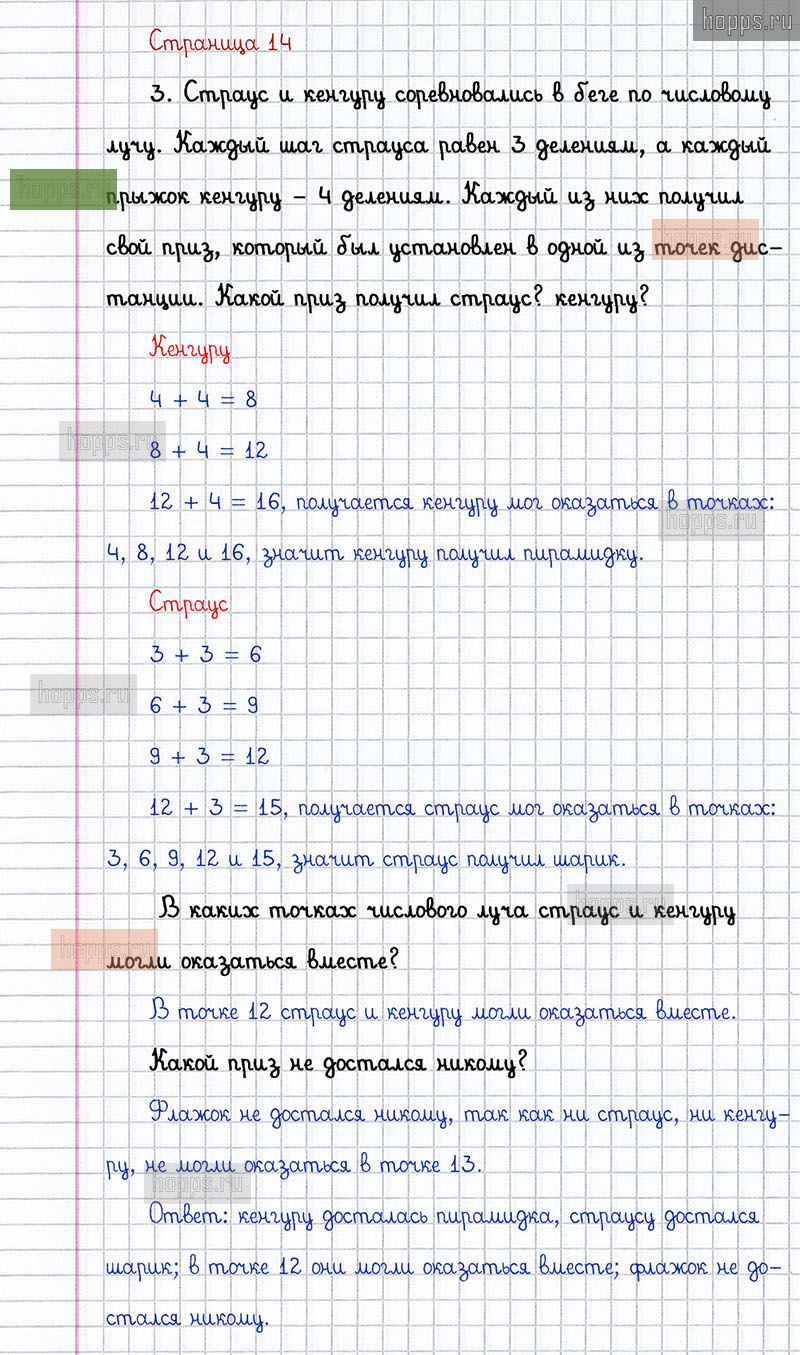 hopps.ru
Страница 14
3. Страус и кенгуру соревновались в беге по числовому
лучу. Каждый шаг страуса равен 3 делениям, а каждый
hopps.ru
прыжок кенгуру – 4 делениям. Каждый из них получил
hopps.ru
свой приз, который был установлен в одной из точек дис-
танции. Какой приз получил страус? кенгуру?
Кенгуру
4 + 4 = 8
hopps.ru
8 + 4 = 12
12 + 4 = 16, получается кенгуру мог оказаться в точках:
hopps.ru
4, 8, 12 и 16, значит кенгуру получил пирамидку.
Страус
3 + 3 = 6
hopps.ru
6 + 3 = 9
9 + 3 = 12
12 + 3 = 15, получается страус мог оказаться в точках:
3, 6, 9, 12 и 15, значит страус получил шарик.
hopps.ru
В каких точках числового луча страус и кенгуру
hopps.ru
могли оказаться вместе?
В точке 12 страус и кенгуру могли оказаться вместе.
Какой приз не достался никому?
Флажок не достался никому, так как ни страус, ни кенгу-
ру, не могли оказаться в точке 13.
hopps.ru
Ответ: кенгуру досталась пирамидка, страусу достался
шарик; в точке 12 они могли оказаться вместе; флажок не до-
стался никому.